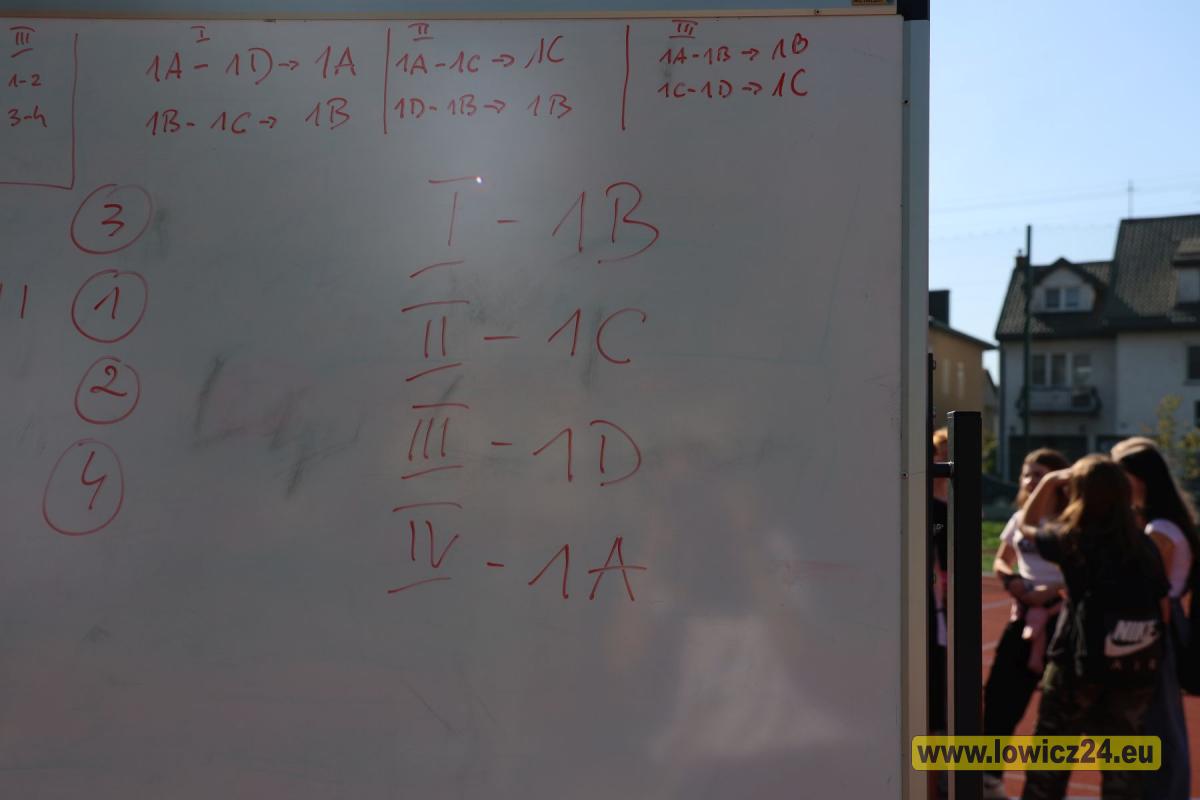 III
1-2
3-4
I
1A - 1D → 1A
1B - 1C → 1B
II
1A - 1C → 1C
1D - 1B → 1B
III
1A - 1B → 1B
1C - 1D → 1C
3
1
2
4
I - 1B
II - 1C
III - 1D
IV - 1A
NIKE
AIR
www.lowicz24.eu